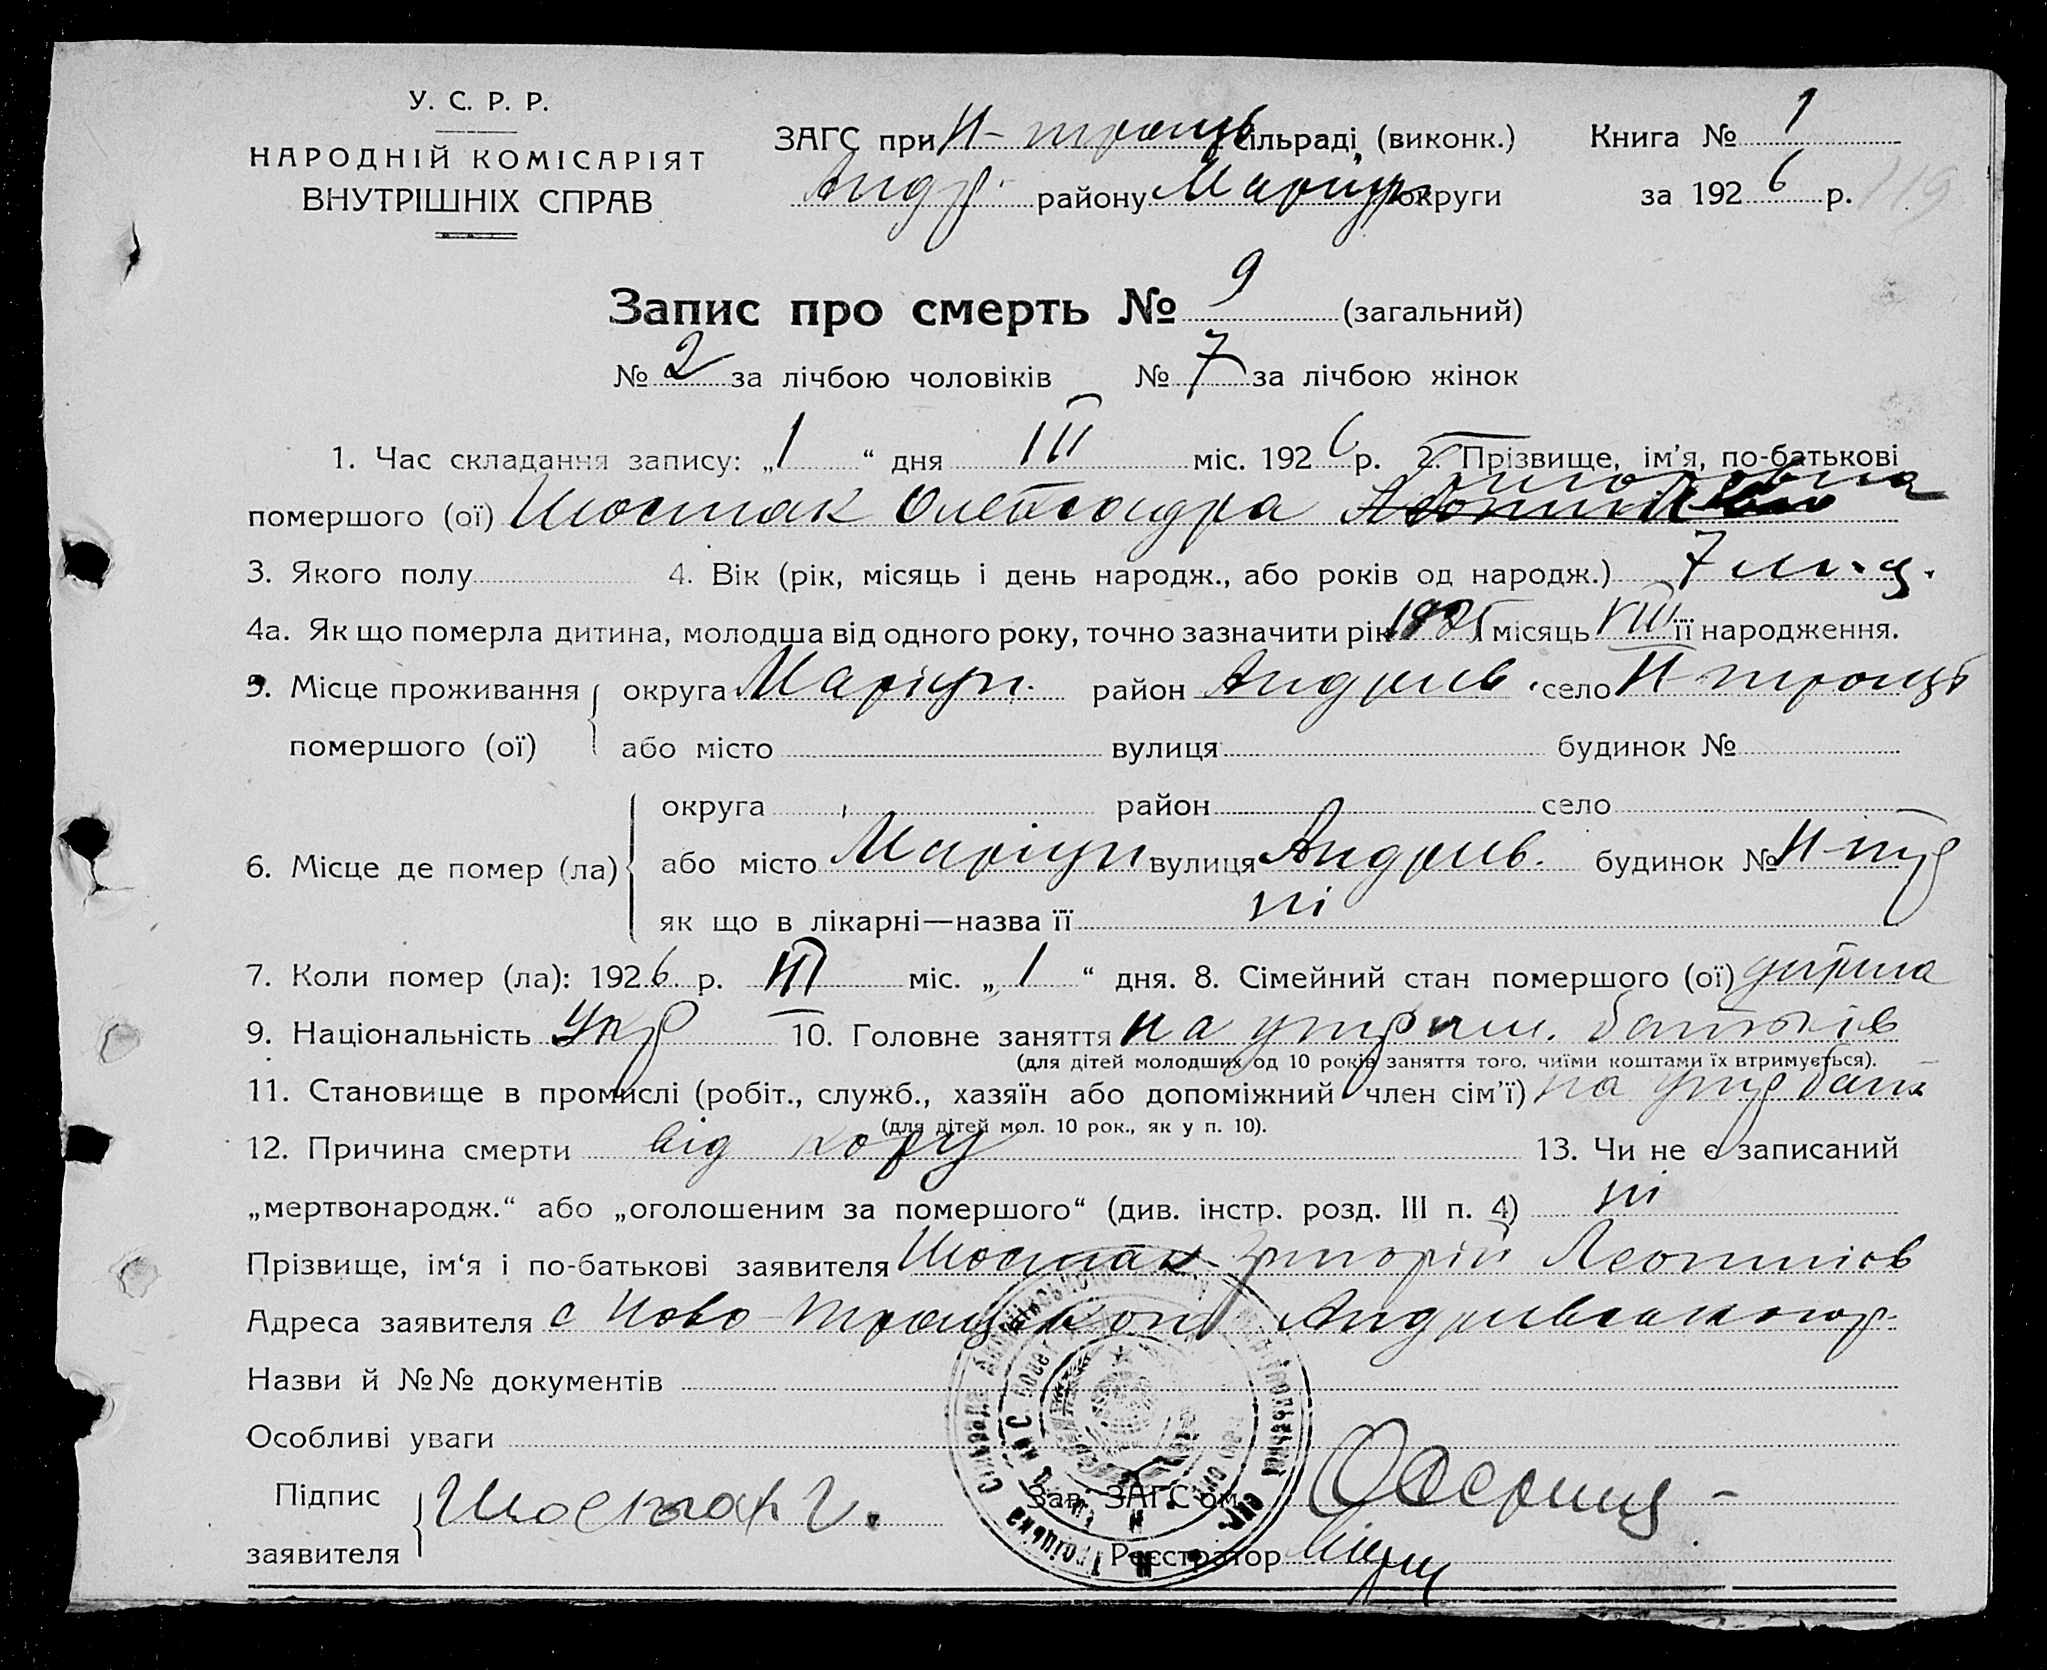 У. С. Р. Р.
НАРОДНІЙ КОМІСАРІЯТ
ВНУТРІШНІХ СПРАВ
ЗАГС при Н-троиць сільраді (виконк.) Книга № 1
Андр. району Маріуп округи за 1926 р. 119
Запис про смерть № 9 (загальний)
№ 2 за лічбою чоловіків № 7 за лічбою жінок
1. Час складання запису: „1“ дня III міс. 1926 р. 2. Прізвище, ім'я, по-батькові
помершого (ої) Шостак Олександра
3. Якого полу 4. Вік (рік, місяць і день народж., або років од народж.) 7 м-ц.
4а. Як що померла дитина, молодша від одного року, точно зазначити рік 1925 місяць VIII її народження.
5. Місце проживання округа Маріуп. район Андрив. село Н-троиць
помершого (ої) або місто вулиця будинок №
округа район село
6. Місце де помер (ла) або місто Маріуп вулиця Андрив. будинок № Н-тр
як що в лікарні—назва її ні
7. Коли помер (ла): 1926 р. III міс. „1“ дня. 8. Сімейний стан помершого (ої) дитина
9. Національність Укр 10. Головне заняття на утрим. батьків
(для дітей молодших од 10 років заняття того, чиїми коштами їх втримується).
11. Становище в промислі (робіт., служб., хазяїн або допоміжний член сім'ї) на утр бать
(для дітей мол. 10 рок., як у п. 10).
12. Причина смерти від кору 13. Чи не є записаний
„мертвонародж.“ або „оголошеним за помершого“ (див. інстр. розд. III п. 4) ні
Прізвище, ім‘я і по-батькові заявителя Шостак Григорій
Адреса заявителя с Ново-Троицкой
Назви й №№ документів
Особливі уваги
Підпис Шостак Г.
заявителя
Зав. ЗАГС'ом
Реєстратор